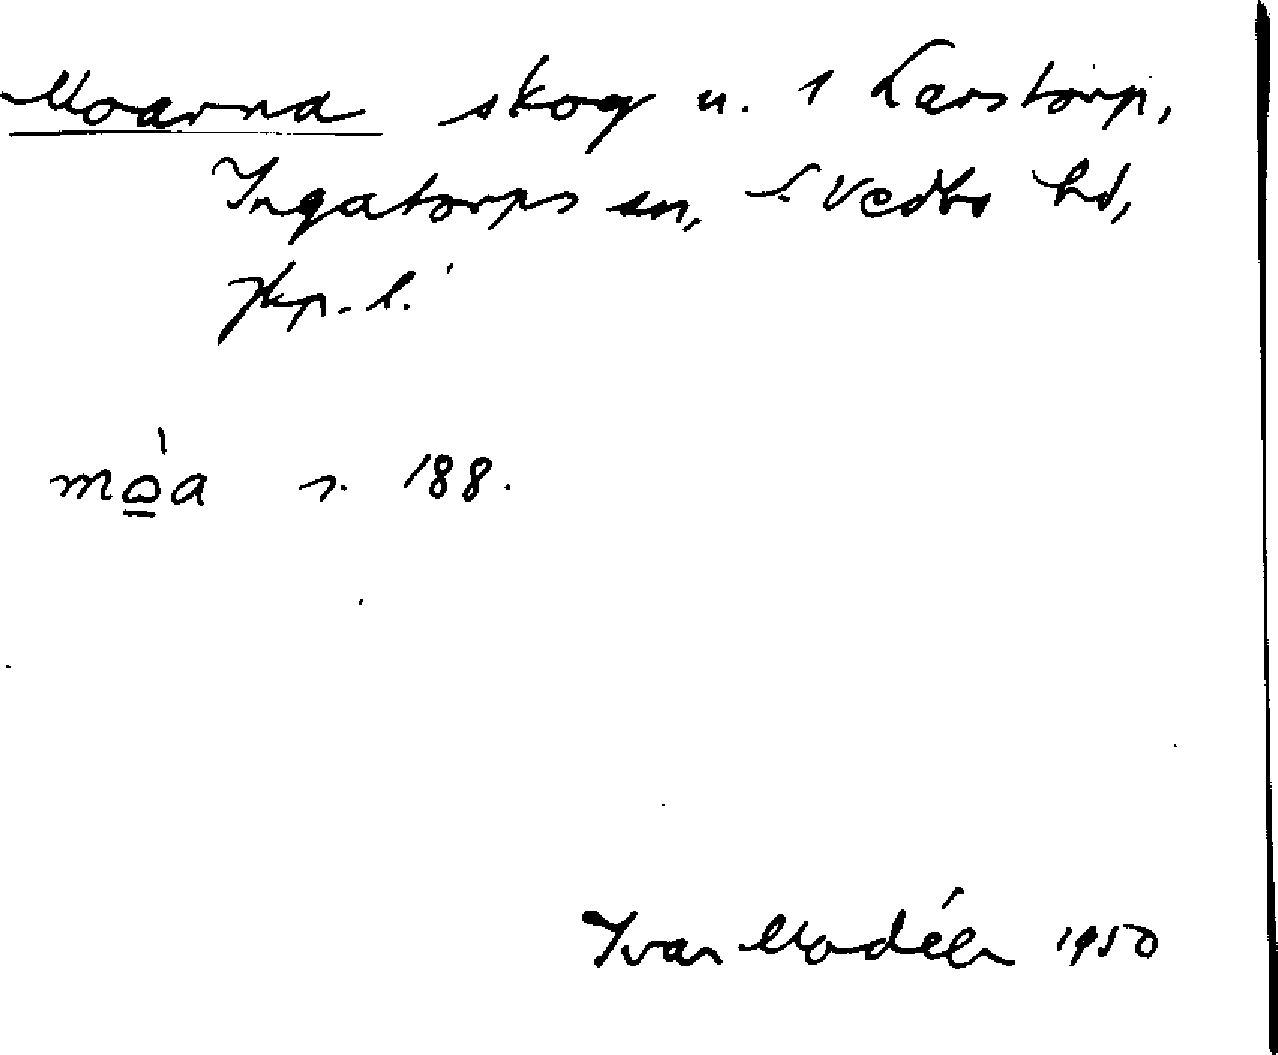 Moarna skog u. 1 Larstorp,
Ingatorps sn, S. Vedbo hd,
Jkp. l.
mò̲a s. 188.
Ivar Modéer 1950